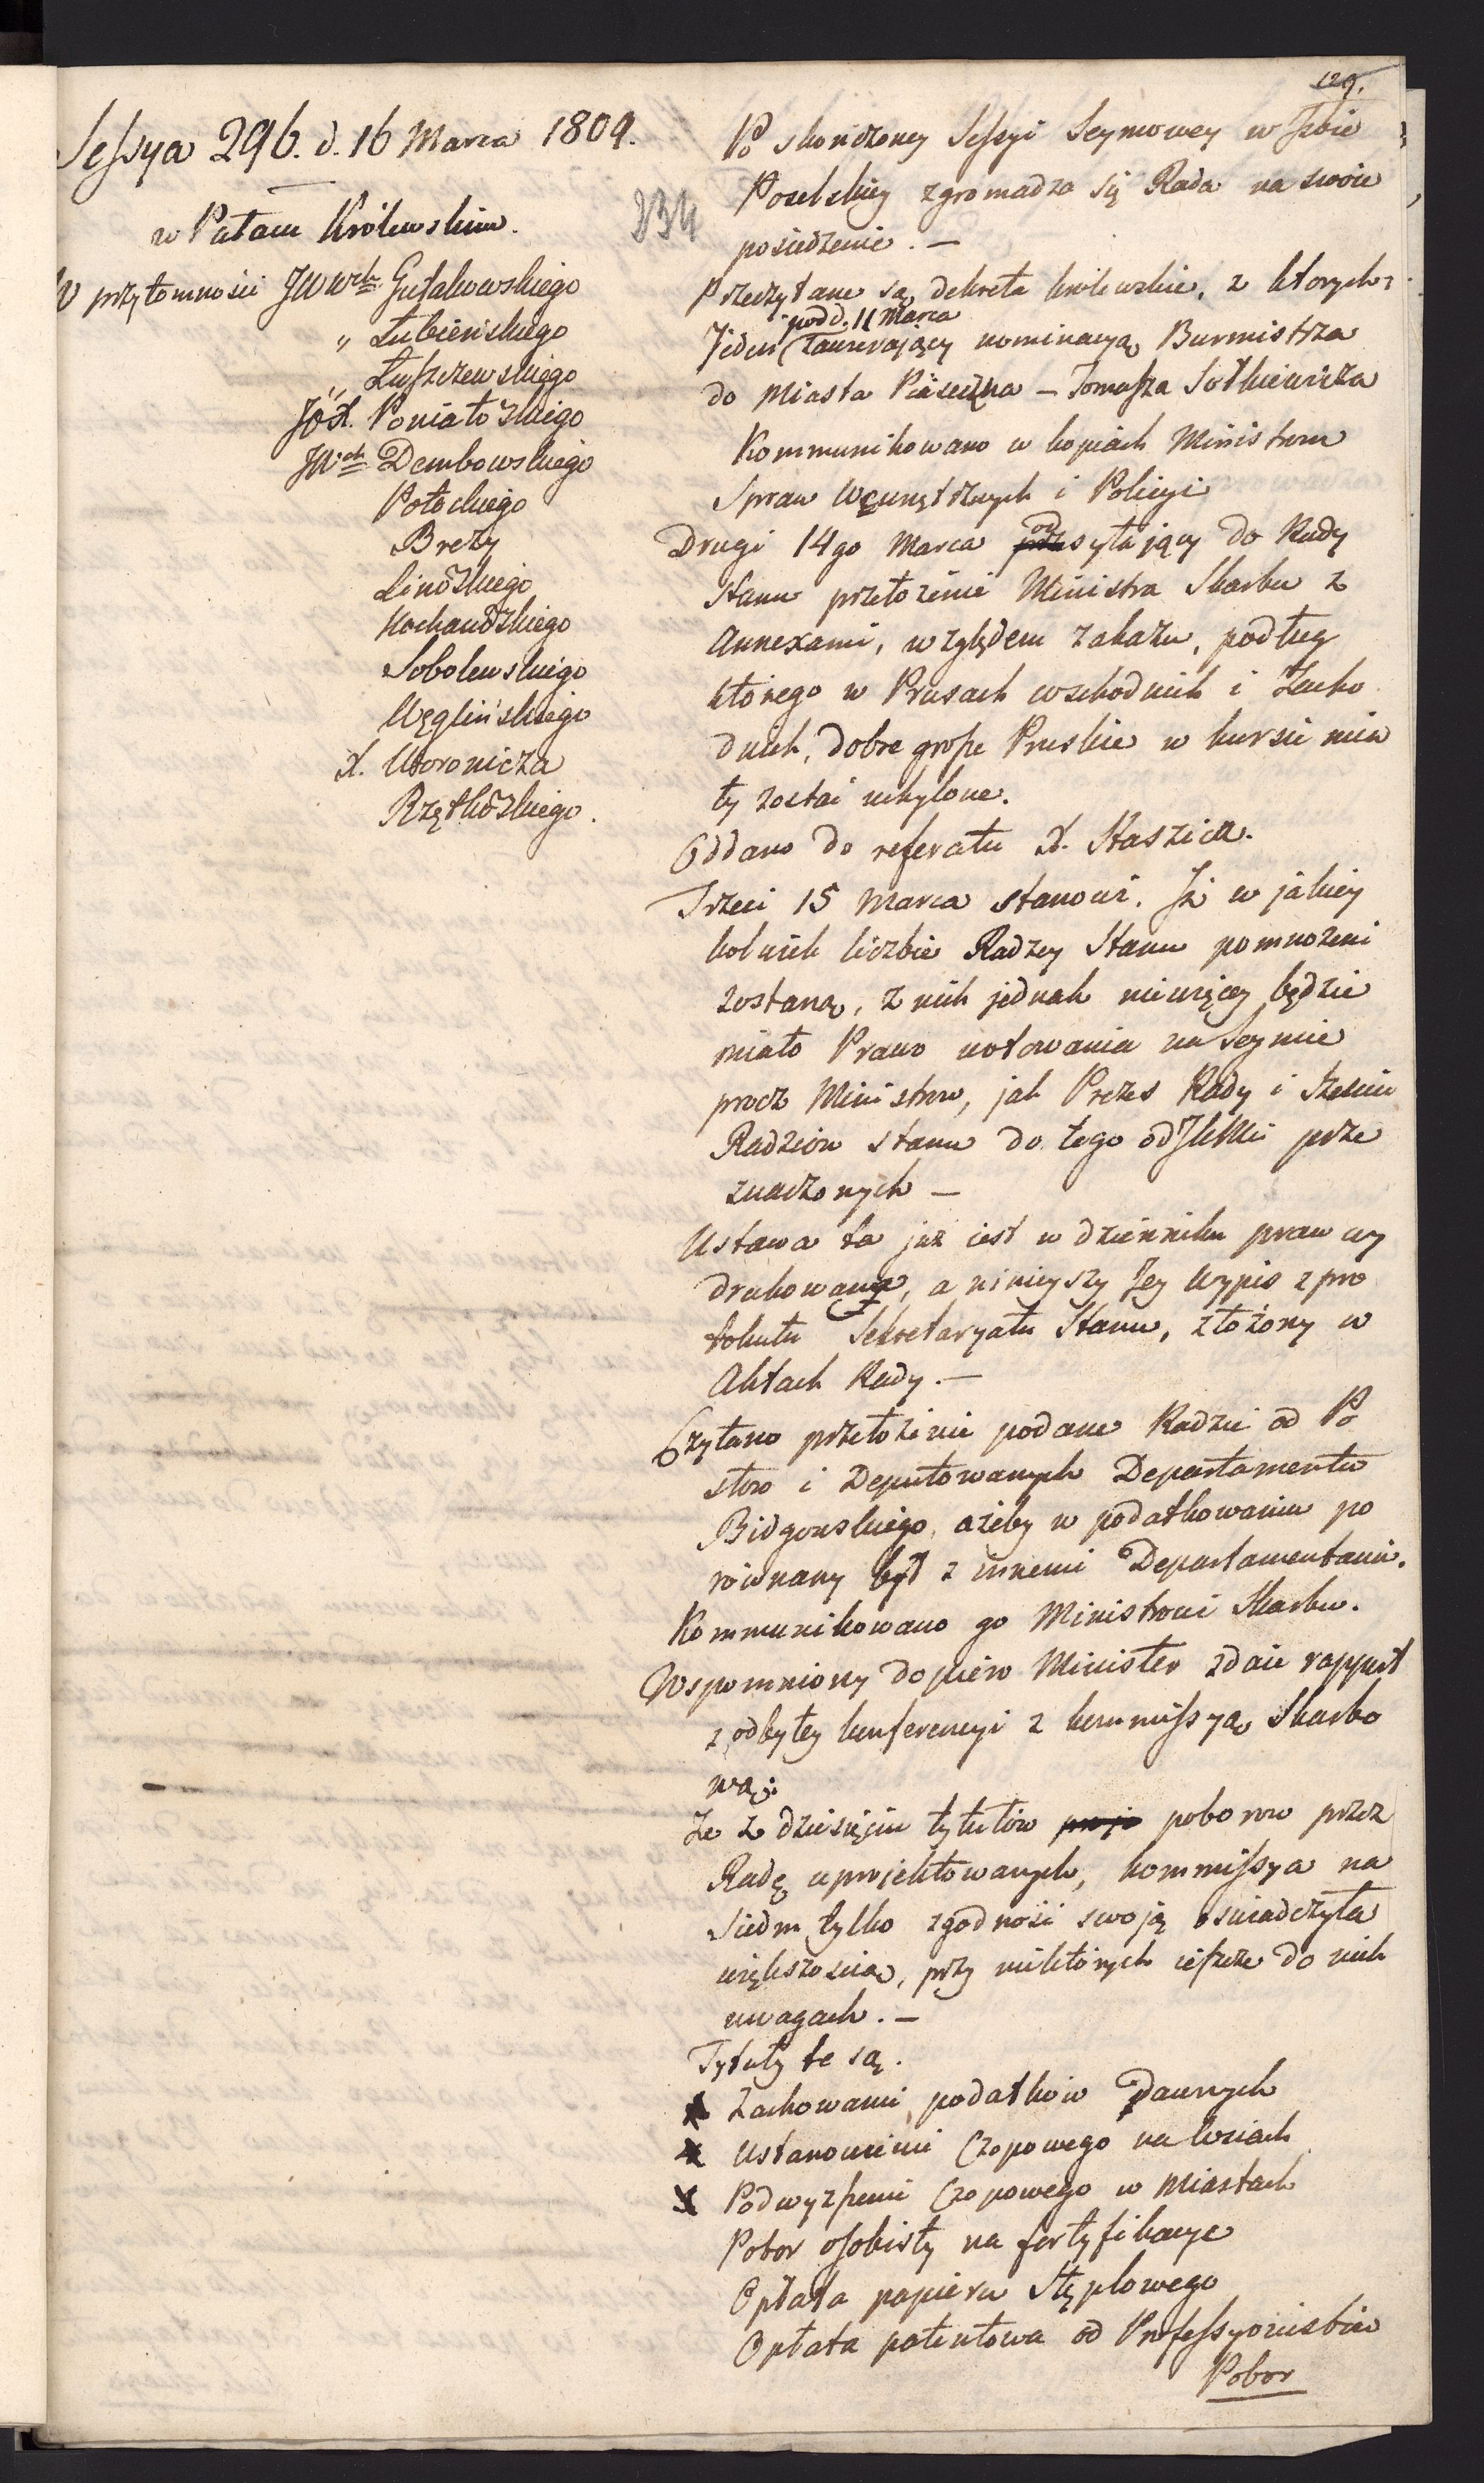 129.
Sessya 296. d. 16 Marca 1809.
w Pałacu Królewskim.
234
W przytomności JWWch Gutakowskiego
„ Łubieńskiego
„ Łuszczewskiego
JOX. Poniatoskiego
JWch Dembowskiego
Potockiego
Brezy
Linoskiego
Kochanoskiego
Sobolewskiego
Węglińskiego
X. Woronicza
Rzętkoskiego.
Po skończoney Sessyi Seymowey w Izbie
Poselskiey zgromadza się Rada na swoie
posiedzenie. —
Przeczytane są dekreta królewskie, z ktorych:
pod d. 11 Marca
Jeden zawierający nominacyą Burmistrza
do Miasta Piaseczna — Tomasza Sołkiewicza
Kommunikowano w kopiach Ministrom
Spraw Wewnętrznych i Policyi
Drugi 14go Marca odsyłający do Rady
Stanu przełożenie Ministra Skarbu z
Annexami, względem zakazu, podług
którego w Prusach wschodnich i Zacho
dnich, dobre grosze Pruskie w kursie mia
ły zostać uchylone.
Oddano do referatu X. Staszica.
Trzeci 15 Marca stanowi. Iż w jakiey
kolwiek liczbie Radzcy Stanu pomnożeni
zostaną, z nich jednak niewięcey będzie
miało Prawo wotowania na Seymie
procz Ministrow, jak Prezes Rady i Sześciu
Radzców stanu do tego od JKMci prze
znaczonych —
Ustawa ta już iest w dzienniku praw wy
drukowana, a ninieyszy Jey Wypis z pro
tokułu Sekretaryatu Stanu, złożony w
Aktach Rady. —
Czytano przełożenie podane Radzie od Po
słow i Deputowanych Departamentu
Bidgoskiego, ażeby w podatkowaniu po
równany był z innemi Departamentami.
Kommunikowano go Ministrowi Skarbu.
Wspomniony dopiero Minister zdaie rapport
z odbytey konferencyi z kommissyą Skarbo
wą:
Że z dziesięciu tytułów poborow przez
Radę uprojektowanych, kommissya na
siedm tylko zgodność swoją oświadczyła
większością, przy niektórych ieszcze do nich
uwagach. —
Tytuły te są.
Zachowanie podatków dawnych
Ustanowienie Czopowego na wsiach
Podwyższenie Czopowego w Miastach
Pobor osobisty na fortyfikacye
Opłata papieru Stęplowego
Opłata patentowa od Professyonistów
Pobor